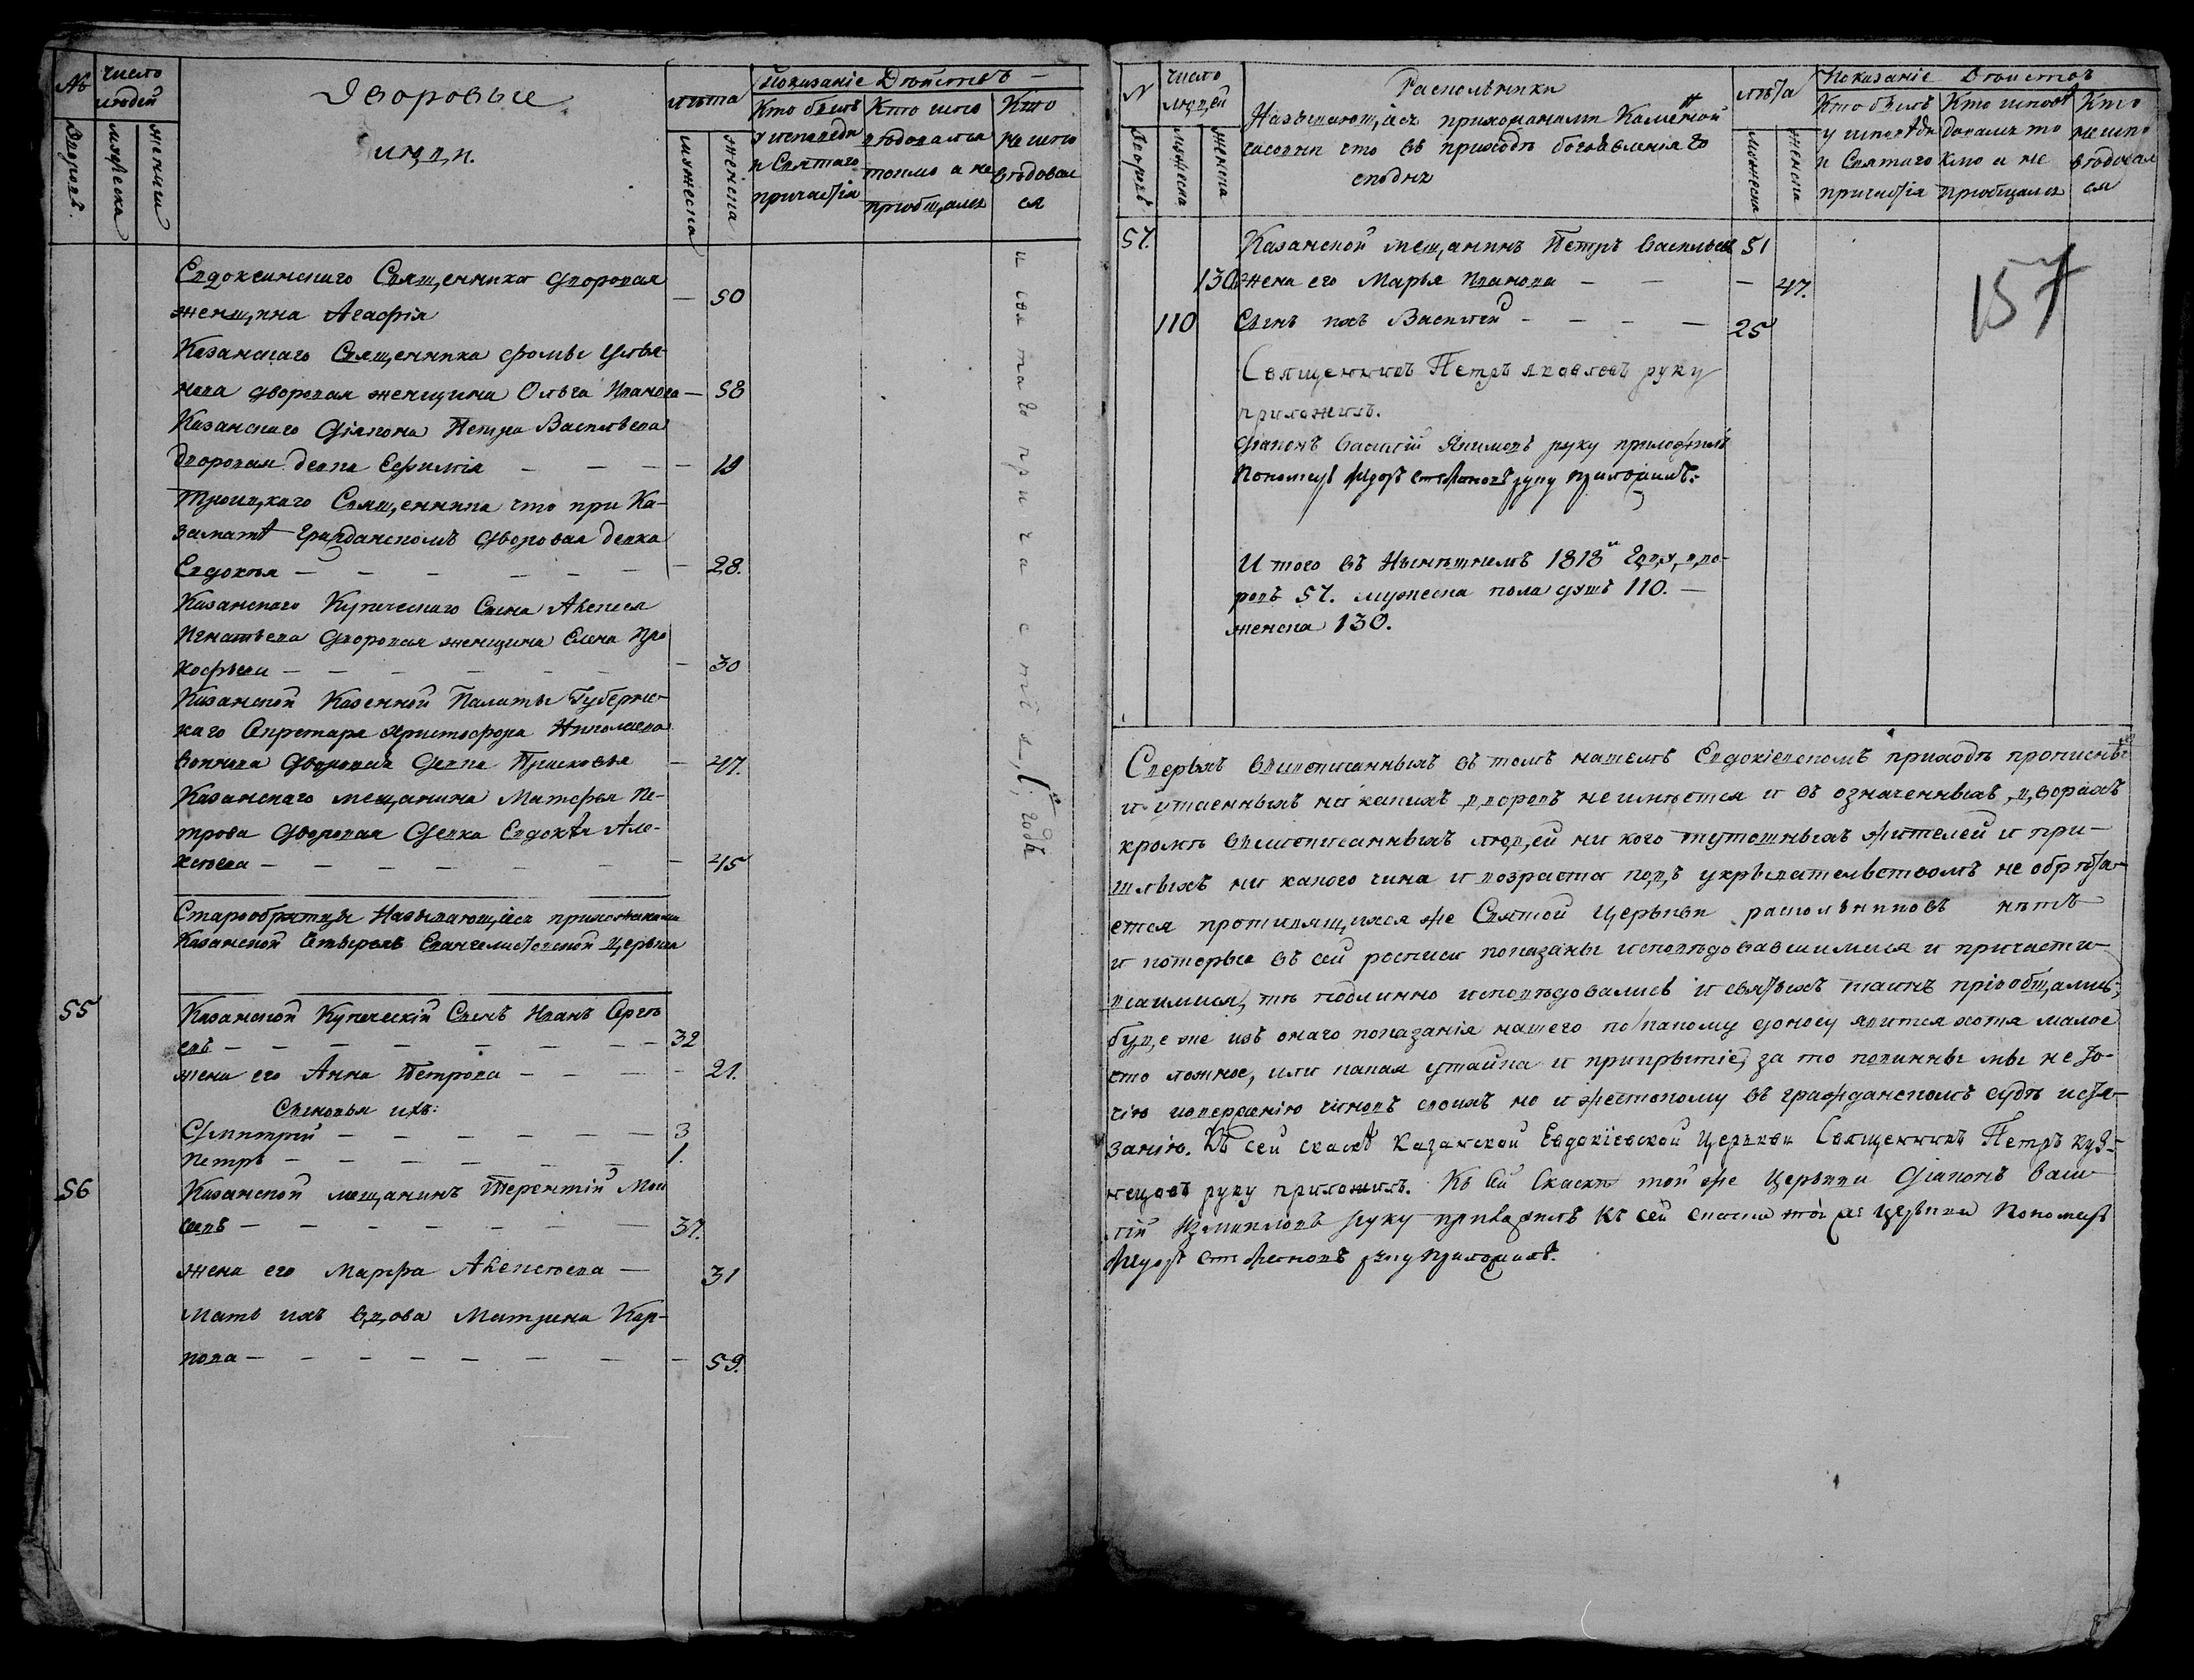 №
число
людей
Дворовъ.
мужеска
женска
Дворовые
люди.
лѣта
мужеска
женска
Показаніе Действъ —
Кто былъ
у исповеди
и Святаго
причастія
Кто испо
вѣдовался
токмо а не
приобщался
Кто
не испо
вѣдовал
ся
Евдокеинскаго Священника дворовая
женщина Агафія — 50
Казанскаго Священника Фомы Улья-
нова дворовая женщина Ольга Иванова — 58
Казанскаго Діакона Петра Васильева
дворовая девка Ефимія — — — — 19
Троицкаго Священника что при Ка-
занатѣ Гражданскомъ дворовая девка
Евдокья — — — — — — — 28.
Казанскаго Купеческаго Сына Алексея
Игнатьева дворовая женщина Елена Про
кофьева — — — — — — 30
Казанской Казенной Палаты Губернс-
каго Секретаря Христофора Николаева
дворовая Девка Прасковья — 47.
Казанскаго мещанина Матфея Пе-
трова дворовая Девка Евдокѣя Але-
ксеева — — — — — — — 45
Старообрятцы Называющійся прихожанами
Казанской Четырехъ Евангелистовской церькви
55 Казанской Купеческій Сынъ Иванъ Серге
евъ — — — — — — — — 32
жена его Анна Петрова — — — — 21.
Сыновья ихъ:
Дмитрей — — — — — — 3
Петръ — — — — — — 1.
56 Казанской мещанинъ Терентій Мои
сеевъ — — — — — — — 37.
жена его Марфа Алексеева — 31
Мать ихъ вдова Матрена Кар-
пова — — — — — — — — 59.
и святаго причастія, годѣ
№
число
людей
Дворовъ
мужеска
женска
Раскольники
Называющійся прихожанами Каменной
часовни что въ приходѣ богоявленія го
сподня
лѣта
мужеска
женска
Показаніе Действъ
Кто былъ
у исповѣди
и Святаго
причастія
Кто исповѣ
довался то
кмо а не
приобщался
Кто
не испо
вѣдовал
ся
57. Казанской мещанинъ Петръ Васильевъ 51
130 жена его Марья Иванова — — — 47.
110 Сынъ ихъ Василей — — — — 25
157
Священникъ Петръ Яковлевъ руку
приложилъ.
Діаконъ Василій Якимовъ руку приложилъ
Пономарь Федоръ Степановъ руку приложилъ.
И того въ Нынешнемъ 1818м Году дво-
ровъ 57. мужеска пола душъ 110. —
женска 130.
Сверьхъ вышеписанныхъ въ томъ нашемъ Евдокіевскомъ приходѣ прописныхъ
и утаенныхъ ни какихъ дворовъ неимѣется и въ означенныхъ дворахъ
кромѣ вышеписанныхъ людей ни кого тутошныхъ жителей и при-
шлыхъ ни какого чина и возраста подъ укрывательствомъ не обрѣта-
ется противящихся же Святой Церькви раскольниковъ нѣтъ
и которые въ сей росписи показаны исповѣдовавшимися и причасти-
вшимися, тѣ подлинно исповѣдовались и святыхъ таинъ пріобщались;
буде же изъ онаго показанія нашего по какому доносу явится хотя малое
что ложное, или какая утайка и прикрытіе, за то повинны мы не то-
чію изверженію чиновъ своихъ но и жестокому въ гражданскомъ судѣ истя-
занію. Къ сей скаскѣ Казанской Евдокіевской Церькви Священникъ Петръ Куз-
нецовъ руку приложилъ. Къ сей Скаскѣ той же Церькви Діаконъ Васи
лій руку приложилъ Къ сей скаске той же церькви Пономарь
Федоръ Степановъ руку приложилъ.